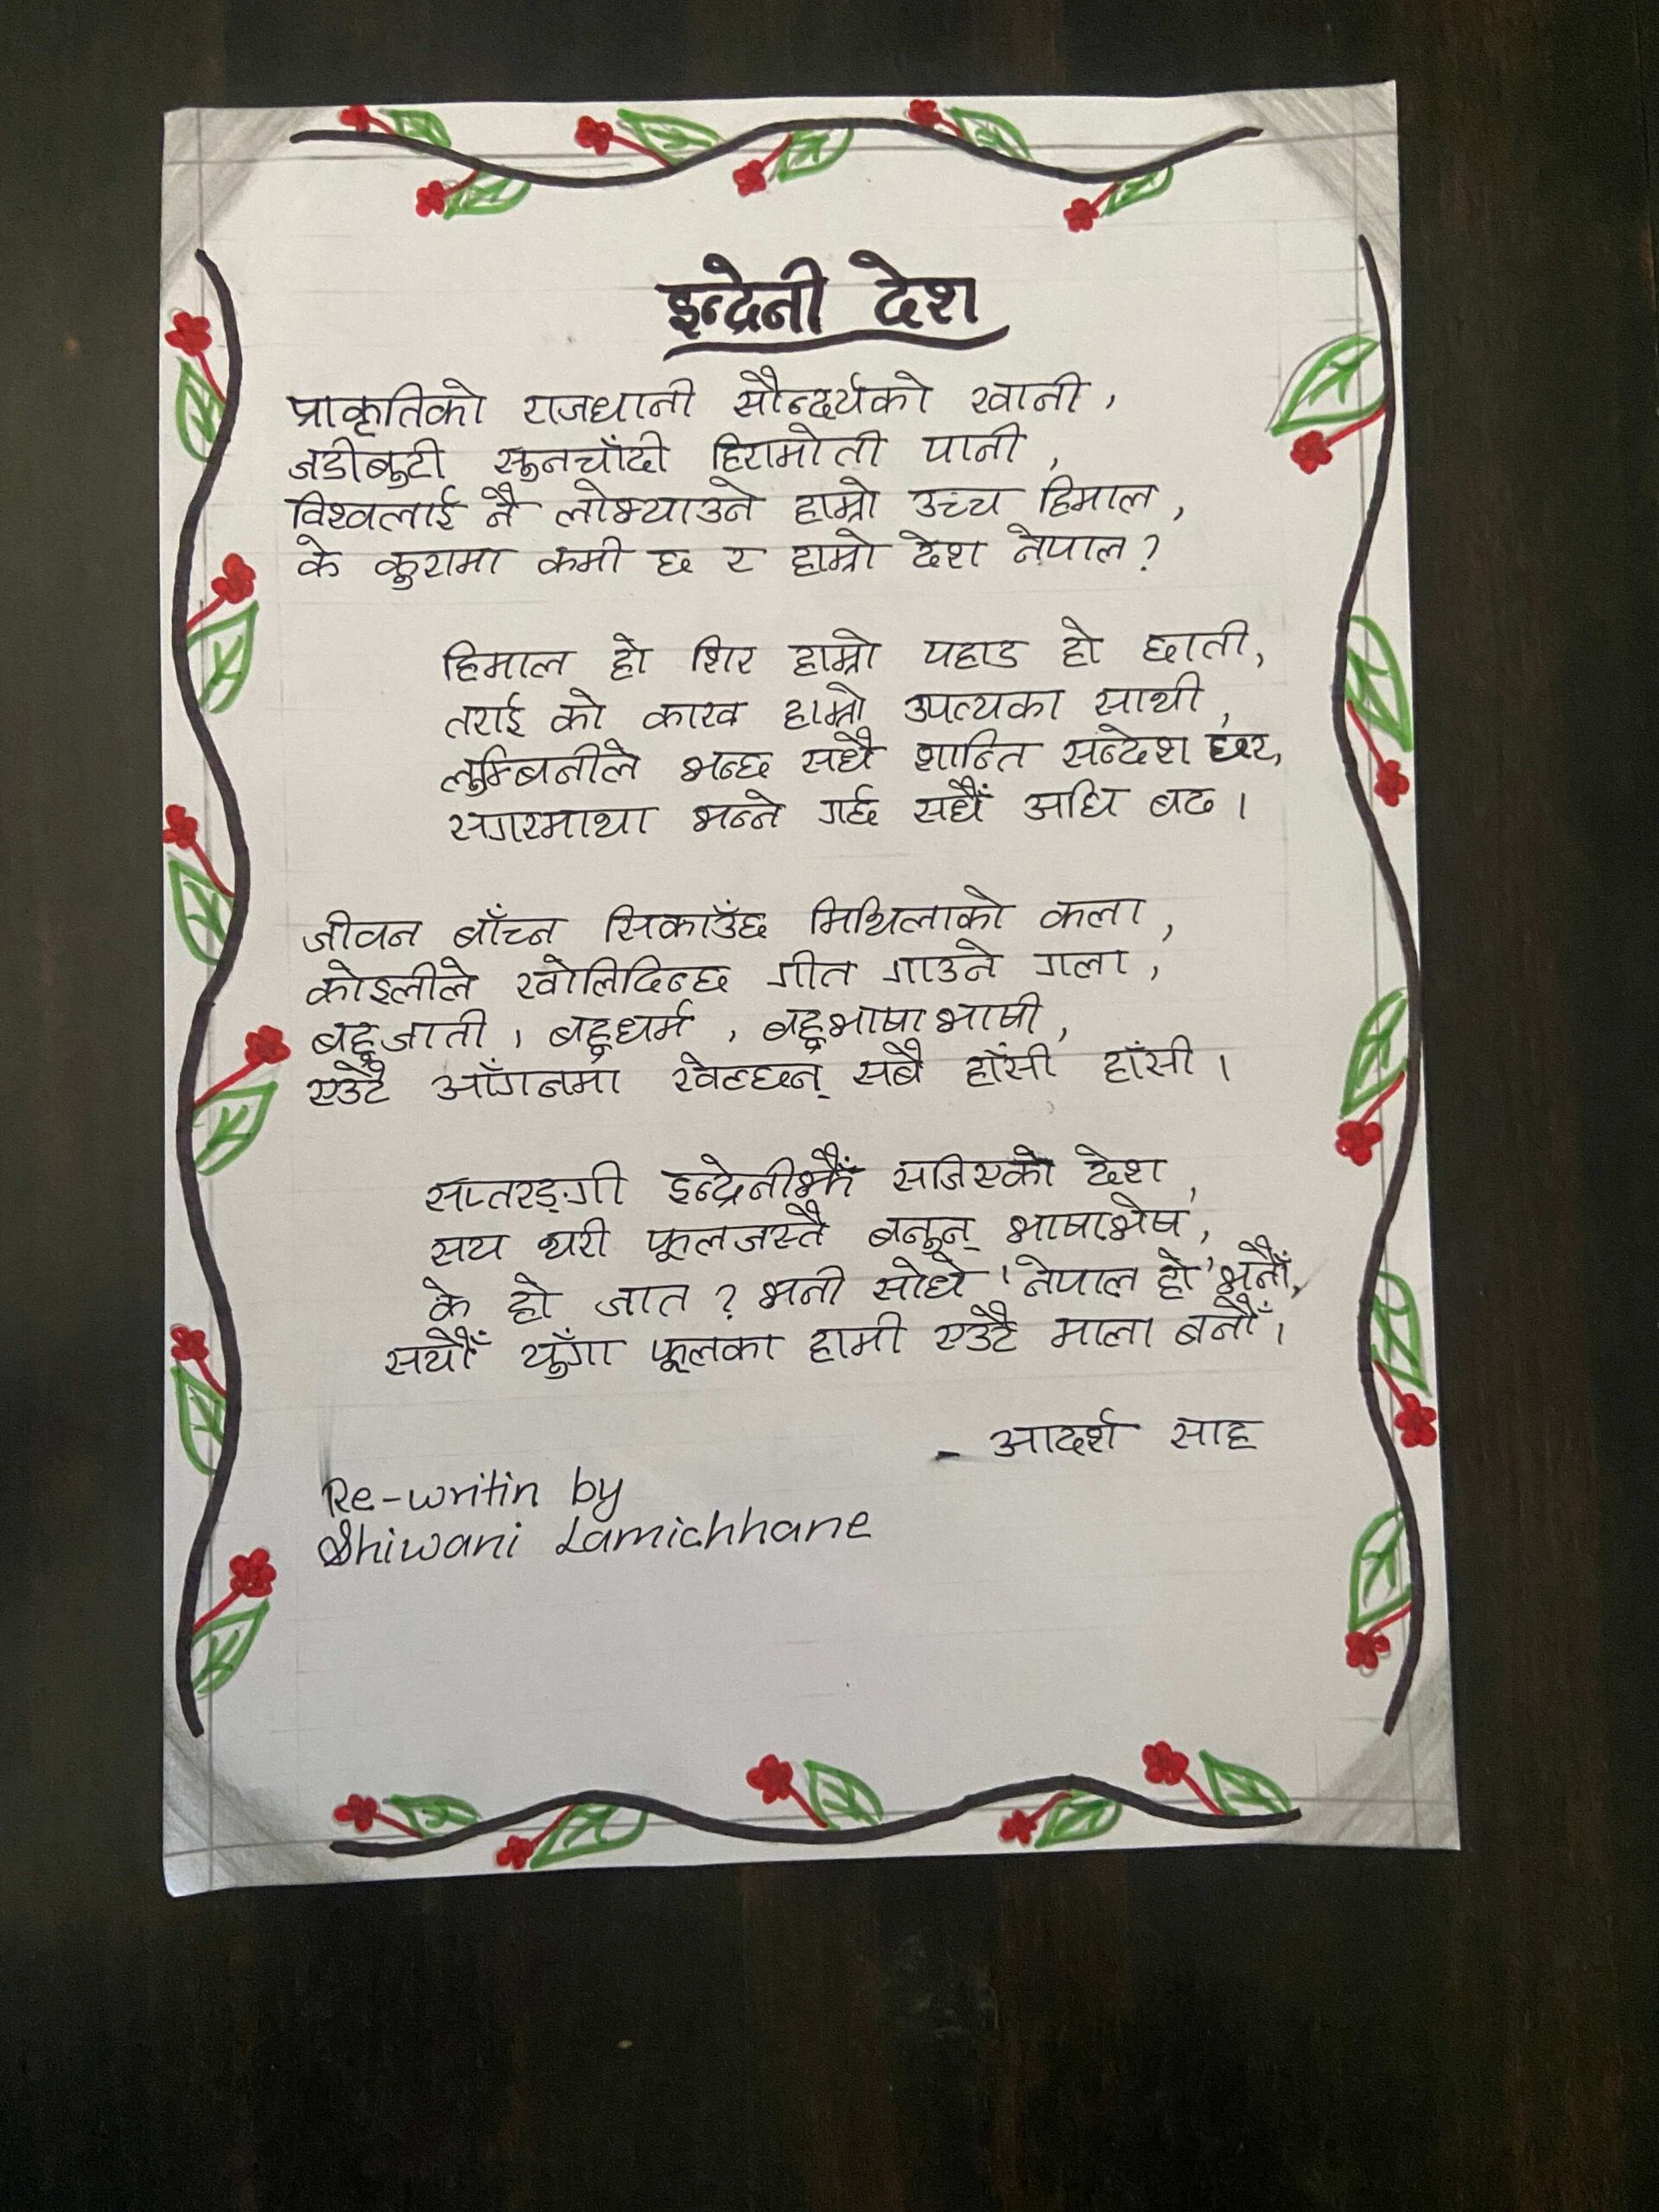 इन्द्रेनी देश
प्राकृतिको राजधानी सौन्दर्यको खानी,
जडीबुटी सुनचाँदी हिरामोती पानी,
विश्वलाई नै लोभ्याउने हाम्रो उच्च हिमाल,
के कुरामा कमी छ र हाम्रो देश नेपाल?
हिमाल हो शिर हाम्रो पहाड हो छाती,
तराई को काख हाम्रो उपत्यका साथी,
लुम्बिनीले भन्छ सधै शान्ति सन्देश छर,
सगरमाथा भन्ने गर्छ सधैं अघि बढ।
जीवन बाँच्न सिकाउँछ मिथिलाको कला,
कोइलीले खोलिदिन्छ गीत गाउने गला,
बहुजाती, बहुधर्म, बहुभाषाभाषी,
एउटै आँगनमा खेल्छन् सबै हाँसी हाँसी।
सप्तरङ्गी इन्द्रेनीझैं सजिएको देश,
सय थरी फूलजस्तै बनून् भाषाभेष,
के हो जात? भनी सोधे 'नेपाल हो' भनौं,
सयौँ थुँगा फूलका हामी एउटै माला बनौँ।
- आदर्श साह
Re-writin by
Shiwani Lamichhane